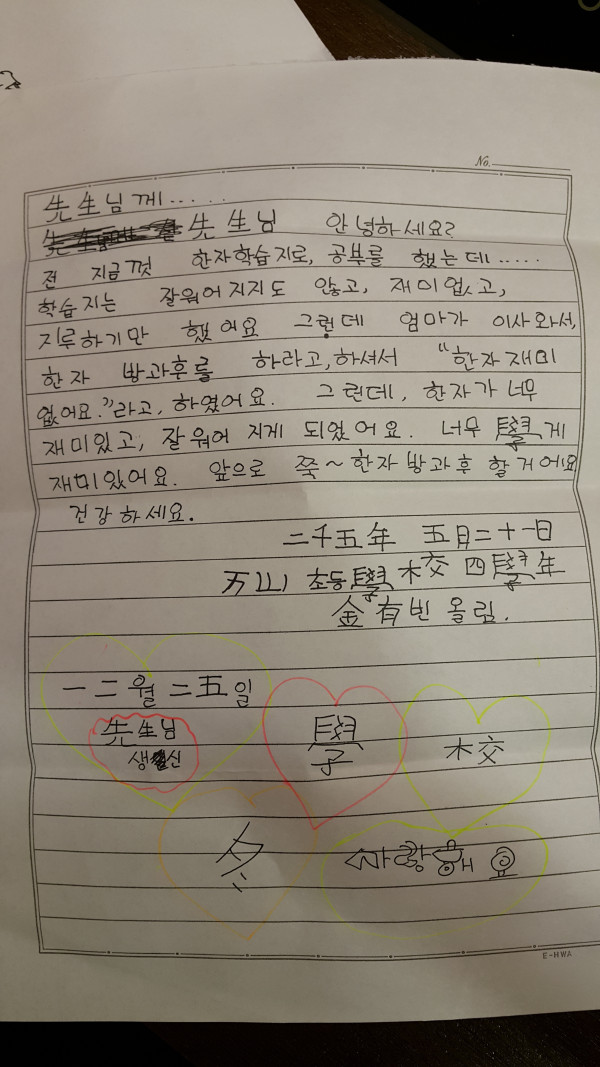 No.
先生님께.....
先生님 안녕하세요?
전 지금껏 한자학습지로, 공부를 했는데.....
학습지는 잘워어지지도 않고, 재미없고,
지루하기만 했어요 그런데 엄마가 이사와서,
한자 방과후를 하라고,하셔서 "한자재미
없어요."라고, 하였어요. 그런데, 한자가 너무
재미있고, 잘워어 지게 되었어요. 너무 學게
재미있어요. 앞으로 쭉~한자방과후 할거에요
건강하세요.
二千五年 五月二十一日
万山 초등學校 四學年
金有빈올림.
一二월 二五일
先生님
생신
學
木交
冬
사랑해요
E-HWA